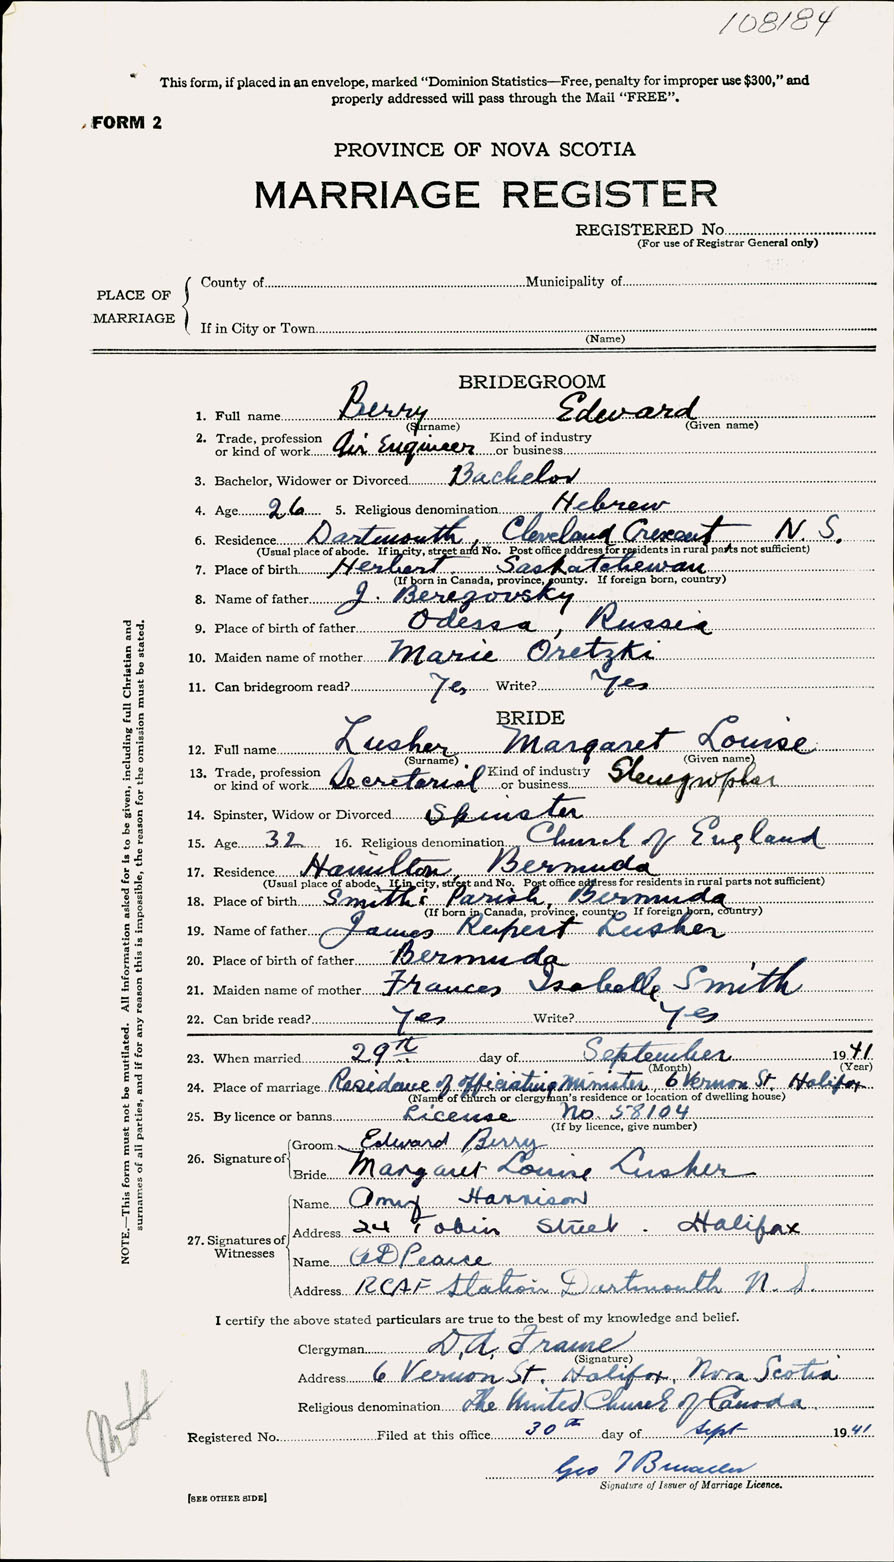 108184
This form, if placed in an envelope, marked “Dominion Statistics—Free, penalty for improper use $300,” and
properly addressed will pass through the Mail “FREE”.
FORM 2
PROVINCE OF NOVA SCOTIA
MARRIAGE REGISTER
REGISTERED No.
(For use of Registrar General only)
PLACE OF MARRIAGE
County of Municipality of
If in City or Town
(Name)
BRIDEGROOM
1. Full name Berry Edward
(Surname) (Given name)
2. Trade, profession or kind of work Air Engineer Kind of industry or business
3. Bachelor, Widower or Divorced Bachelor
4. Age 26 5. Religious denomination Hebrew
6. Residence Dartmouth, Cleveland Crescent N. S.
(Usual place of abode. If in city, street and No. Post office address for residents in rural parts not sufficient)
7. Place of birth Herbert Saskatchewan
(If born in Canada, province, county. If foreign born, country)
8. Name of father J. Beregovsky
9. Place of birth of father Odessa, Russia
10. Maiden name of mother Marie Oretzki
11. Can bridegroom read? Yes Write? Yes
BRIDE
12. Full name Lusher Margaret Louise
(Surname) (Given name)
13. Trade, profession or kind of work Secretarial Kind of industry or business
14. Spinster, Widow or Divorced Spinster
15. Age 32 16. Religious denomination Church of England
17. Residence Hamilton, Bermuda
(Usual place of abode. If in city, street and No. Post office address for residents in rural parts not sufficient)
18. Place of birth Smith's Parish, Bermuda
(If born in Canada, province, county. If foreign born, country)
19. Name of father James Rupert Lusher
20. Place of birth of father Bermuda
21. Maiden name of mother Frances Isabelle Smith
22. Can bride read? Yes Write? Yes
23. When married 29th day of September 1941
(Month) (Year)
24. Place of marriage Residence of officiating Minister, 6 Vernon St. Halifax
(Name of church or clergyman's residence or location of dwelling house)
25. By licence or banns License No. 58104
(If by licence, give number)
26. Signature of Groom Edward Berry
Bride Margaret Louise Lusher
27. Signatures of Witnesses
Name Amy Harrison
Address 24 Tobin Street. Halifax
Name Pearce
Address RCAF Station Dartmouth N. S.
I certify the above stated particulars are true to the best of my knowledge and belief.
Clergyman D. A. Frame
(Signature)
Address 6 Vernon St. Halifax, Nova Scotia
Religious denomination The United Church of Canada
Registered No. Filed at this office 30th day of Sept 1941
Geo T
Signature of Issuer of Marriage Licence.
[SEE OTHER SIDE]
NOTE.—This form must not be mutilated. All information asked for is to be given, including full Christian and
surnames of all parties, and if for any reason this is impossible, the reason for the omission must be stated.